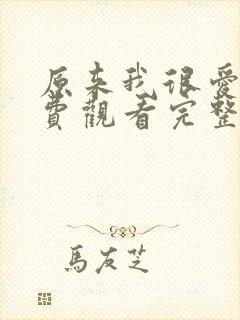 原来我很爱
費觀看完整
馬友芝